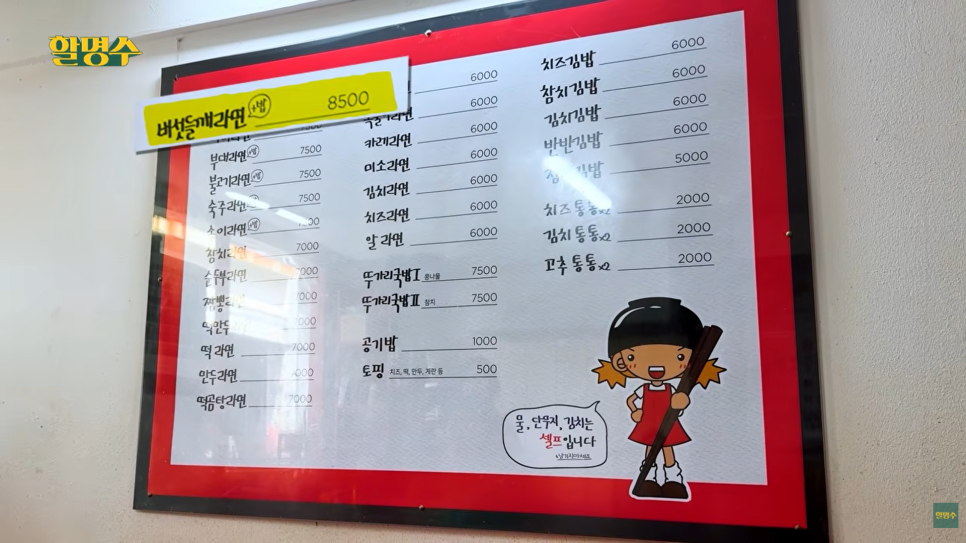 할명수
버섯들깨라면 +밥 8500
부대라면 +밥 7500
불고기라면 +밥 7500
숙주라면 7500
송이라면 +밥
참치라면 7000
순두부라면 7000
짬뽕라면 7000
떡만두 7000
떡라면 7000
만두라면 7000
떡곰탕라면 7000
6000
6000
카레라면 6000
미소라면 6000
김치라면 6000
치즈라면 6000
알라면 6000
뚜가리국밥Ⅰ 콩나물 7500
뚜가리국밥Ⅱ 참치 7500
공기밥 1000
토핑 치즈, 떡, 만두, 계란 등 500
치즈김밥 6000
참치김밥 6000
김치김밥 6000
반반김밥 6000
김밥 5000
치즈통통x2 2000
김치통통x2 2000
고추통통x2 2000
물, 단무지, 김치는
셀프입니다
할명수